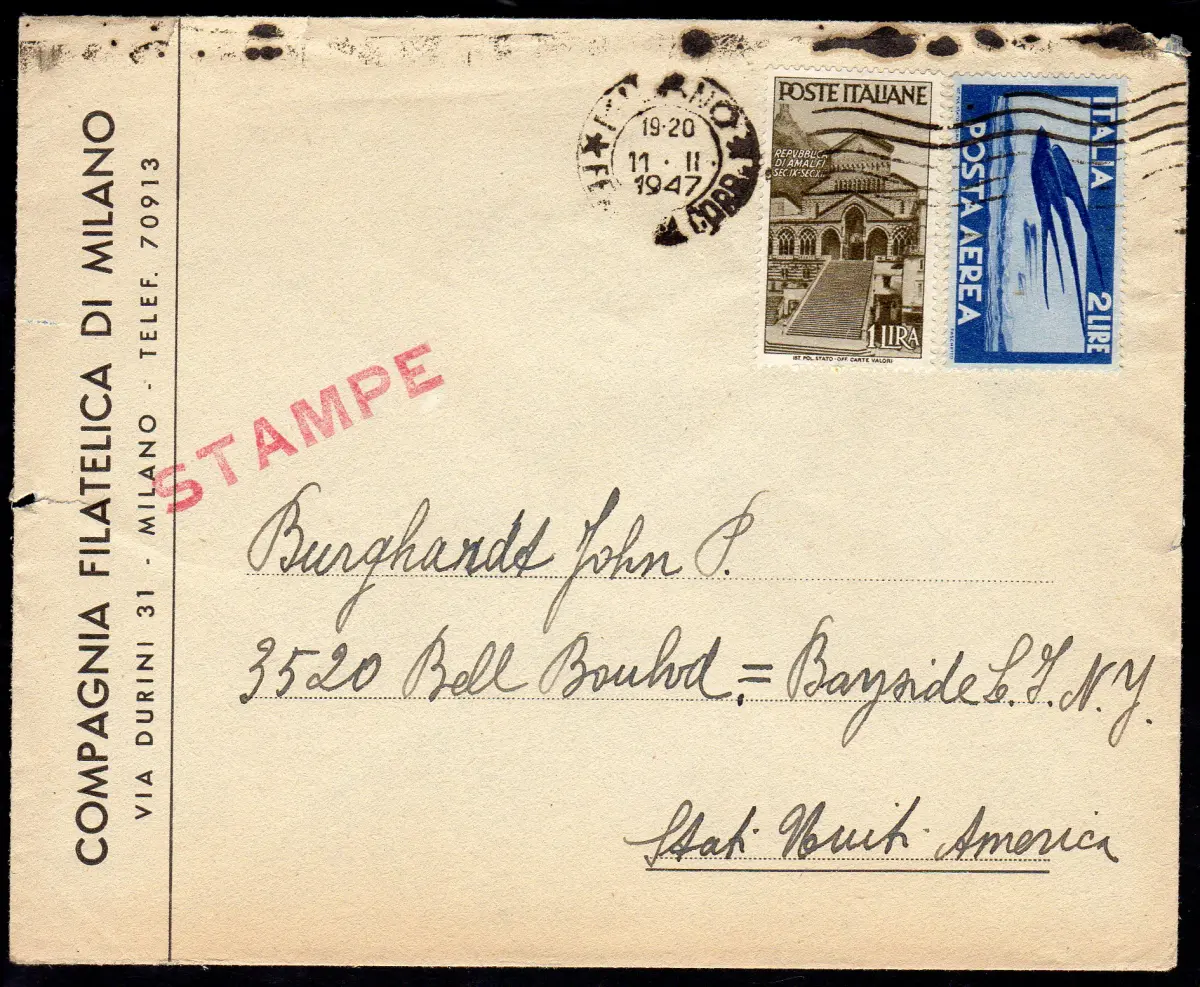 COMPAGNIA FILATELICA DI MILANO
VIA DURINI 31 - MILANO - TELEF. 70913
19·20
11·II·
1947
CORR
POSTE ITALIANE
REPVBBLICA
DI AMALFI
SEC.IX-SEC.XI
1 LIRA
IST. POL. STATO-OFF. CARTE VALORI
ITALIA
POSTA AEREA
2 LIRE
STAMPE
Burghardt John P.
3520 Bell Boulvd. = Bayside L. I. N. Y.
Stati Uniti America